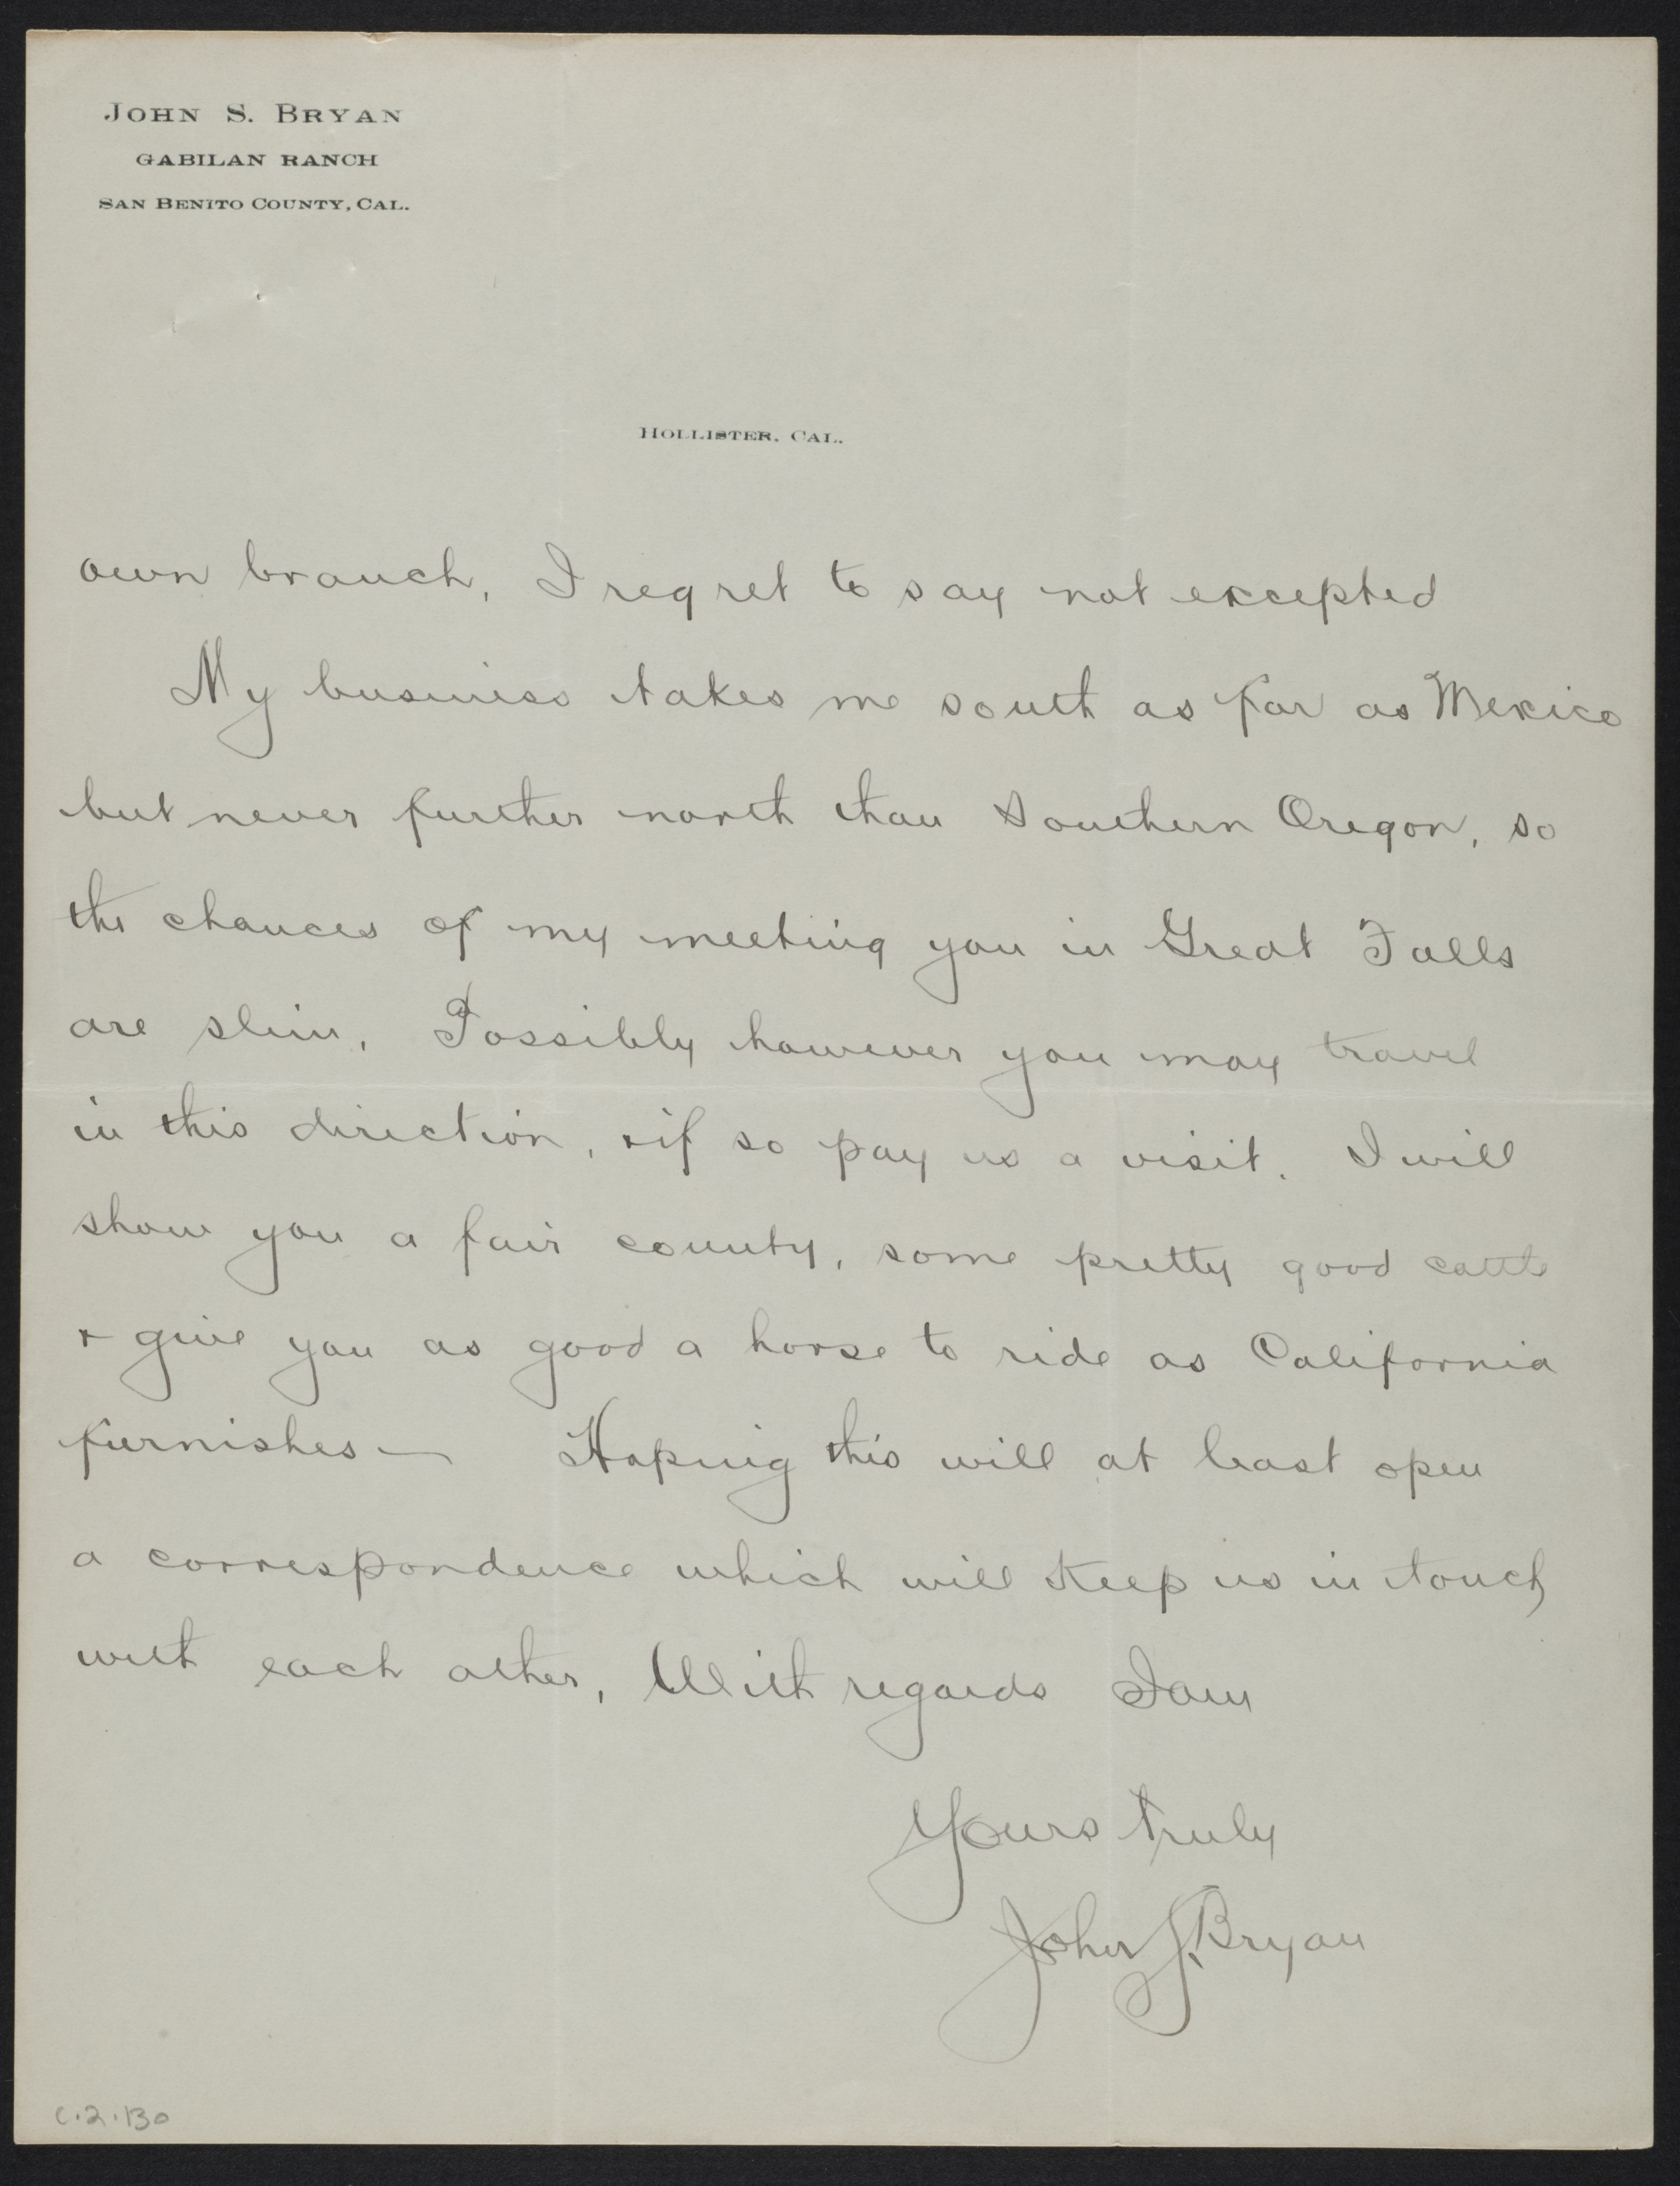 JOHN S. BRYAN
GABILAN RANCH
SAN BENITO COUNTY, CAL.
HOLLISTER, CAL.
own branch, I regret to say not excepted
My business takes me south as far as Mexico
but never further north than Southern Oregon, so
the chances of my meeting you in Great Falls
are slim. Possibly however you may travel
in this direction, & if so pay us a visit. I will
show you a fair county, some pretty good cattle
& give you as good a horse to ride as California
furnishes — Hoping this will at least open
a correspondence which will keep us in touch
with each other, With regards I am
Yours truly
John S. Bryan
C.2.130